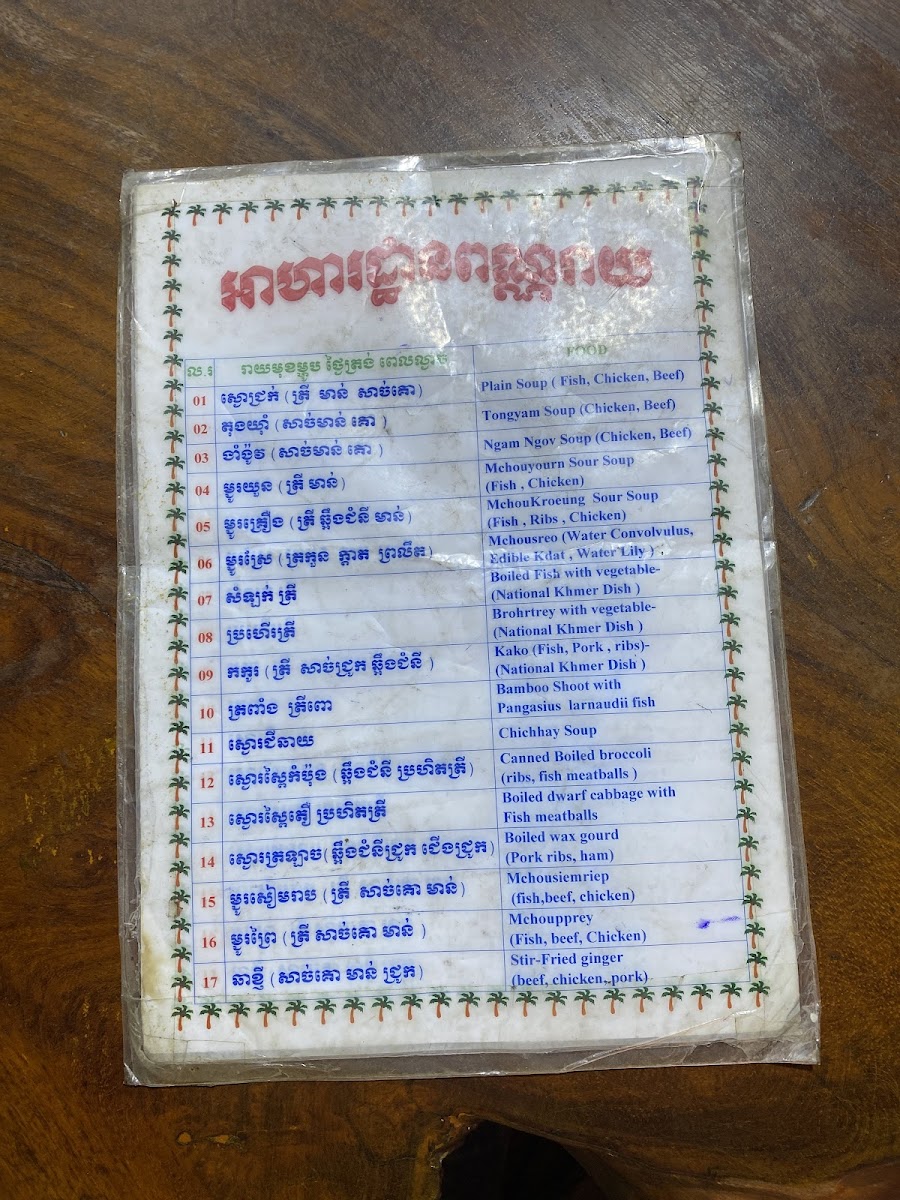 អាហារដ្ឋានពណ្ណរាយ
ល.រ រាយមុខម្ហូប ថ្ងៃត្រង់ ពេលល្ងាច FOOD
01 ស្ងោជ្រក់ (ត្រី មាន់ សាច់គោ) Plain Soup ( Fish, Chicken, Beef)
02 តុងយ៉ាំ (សាច់មាន់ គោ ) Tongyam Soup (Chicken, Beef)
03 ងាំង៉ូវ (សាច់មាន់ គោ ) Ngam Ngov Soup (Chicken, Beef)
04 ម្ជូរយួន ( ត្រី មាន់) Mchouyourn Sour Soup
(Fish , Chicken)
05 ម្ជូរគ្រឿង ( ត្រី ឆ្អឹងជំនី មាន់) MchouKroeung Sour Soup
(Fish , Ribs , Chicken)
06 ម្ជូរស្រែ (ត្រកួន ក្តាត ព្រលឹត) Mchousreo (Water Convolvulus,
Edible Kdat , Water Lily ) .
07 សំឡក់ ត្រី Boiled Fish with vegetable-
(National Khmer Dish )
08 ប្រហើរត្រី Brohrtrey with vegetable-
(National Khmer Dish )
09 កកូរ ( ត្រី សាច់ជ្រូក ឆ្អឹងជំនី ) Kako (Fish, Pork , ribs)-
(National Khmer Dish )
10 ត្រពាំង ត្រីពោ Bamboo Shoot with
Pangasius larnaudii fish
11 ស្ងោរជីឆាយ Chichhay Soup
12 ស្ងោរស្ពៃកំប៉ុង ( ឆ្អឹងជំនី ប្រហិតត្រី) Canned Boiled broccoli
(ribs, fish meatballs )
13 ស្ងោរស្ពៃតឿ ប្រហិតត្រី Boiled dwarf cabbage with
Fish meatballs
14 ស្ងោរត្រឡាច( ឆ្អឹងជំនីជ្រូក ជើងជ្រូក) Boiled wax gourd
(Pork ribs, ham)
15 ម្ជូរសៀមរាប ( ត្រី សាច់គោ មាន់) Mchousiemriep
(fish,beef, chicken)
16 ម្ជូរព្រៃ ( ត្រី សាច់គោ មាន់ ) Mchoupprey
(Fish, beef, Chicken)
17 ឆាខ្ញី (សាច់គោ មាន់ ជ្រូក) Stir-Fried ginger
(beef, chicken,.pork)